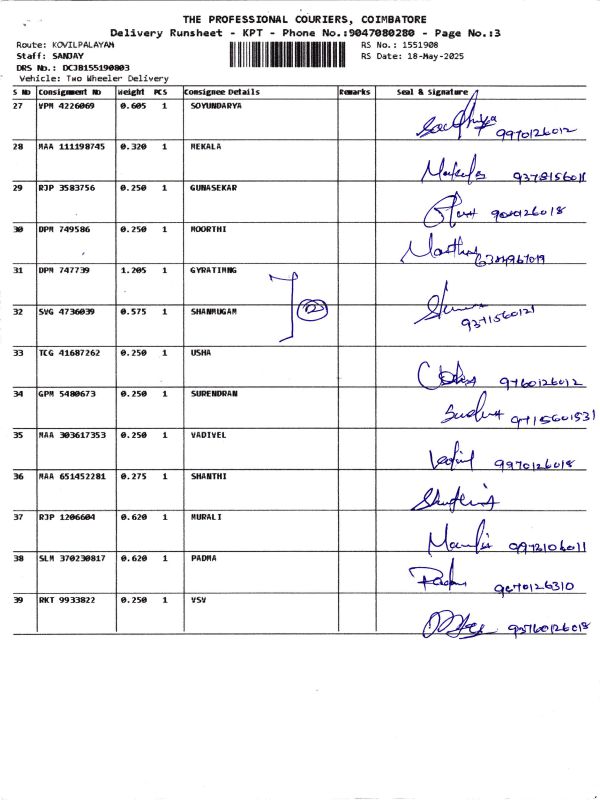 THE PROFESSIONAL COURIERS, COIMBATORE
Delivery Runsheet - KPT - Phone No.:9047080280 - Page No.:3
Route: KOVILPALAYAM RS No.: 1551908
Staff: SANJAY RS Date: 18-May-2025
DRS No.: DCJB155190803
Vehicle: Two Wheeler Delivery
S No Consignment No Weight PCS Consignee Details Remarks Seal & Signature
27 VPM 4226069 0.605 1 SOYUNDARYA
9970126012
28 MAA 111198745 0.320 1 MEKALA
9378156011
29 RJP 3583756 0.250 1 GUNASEKAR
30 DPM 749586 0.250 1 MOORTHI
31 DPM 747739 1.205 1 GYRATIMNG
12
32 SVG 4736039 0.575 1 SHANMUGAM
9371560121
33 TCG 41687262 0.250 1 USHA
9760126012
34 GPM 5480673 0.250 1 SURENDRAN
35 MAA 303617353 0.250 1 VADIVEL
9970126018
36 MAA 651452281 0.275 1 SHANTHI
37 RJP 1206604 0.620 1 MURALI
38 SLM 370230817 0.620 1 PADMA
Padma
39 RKT 9933822 0.250 1 VSV